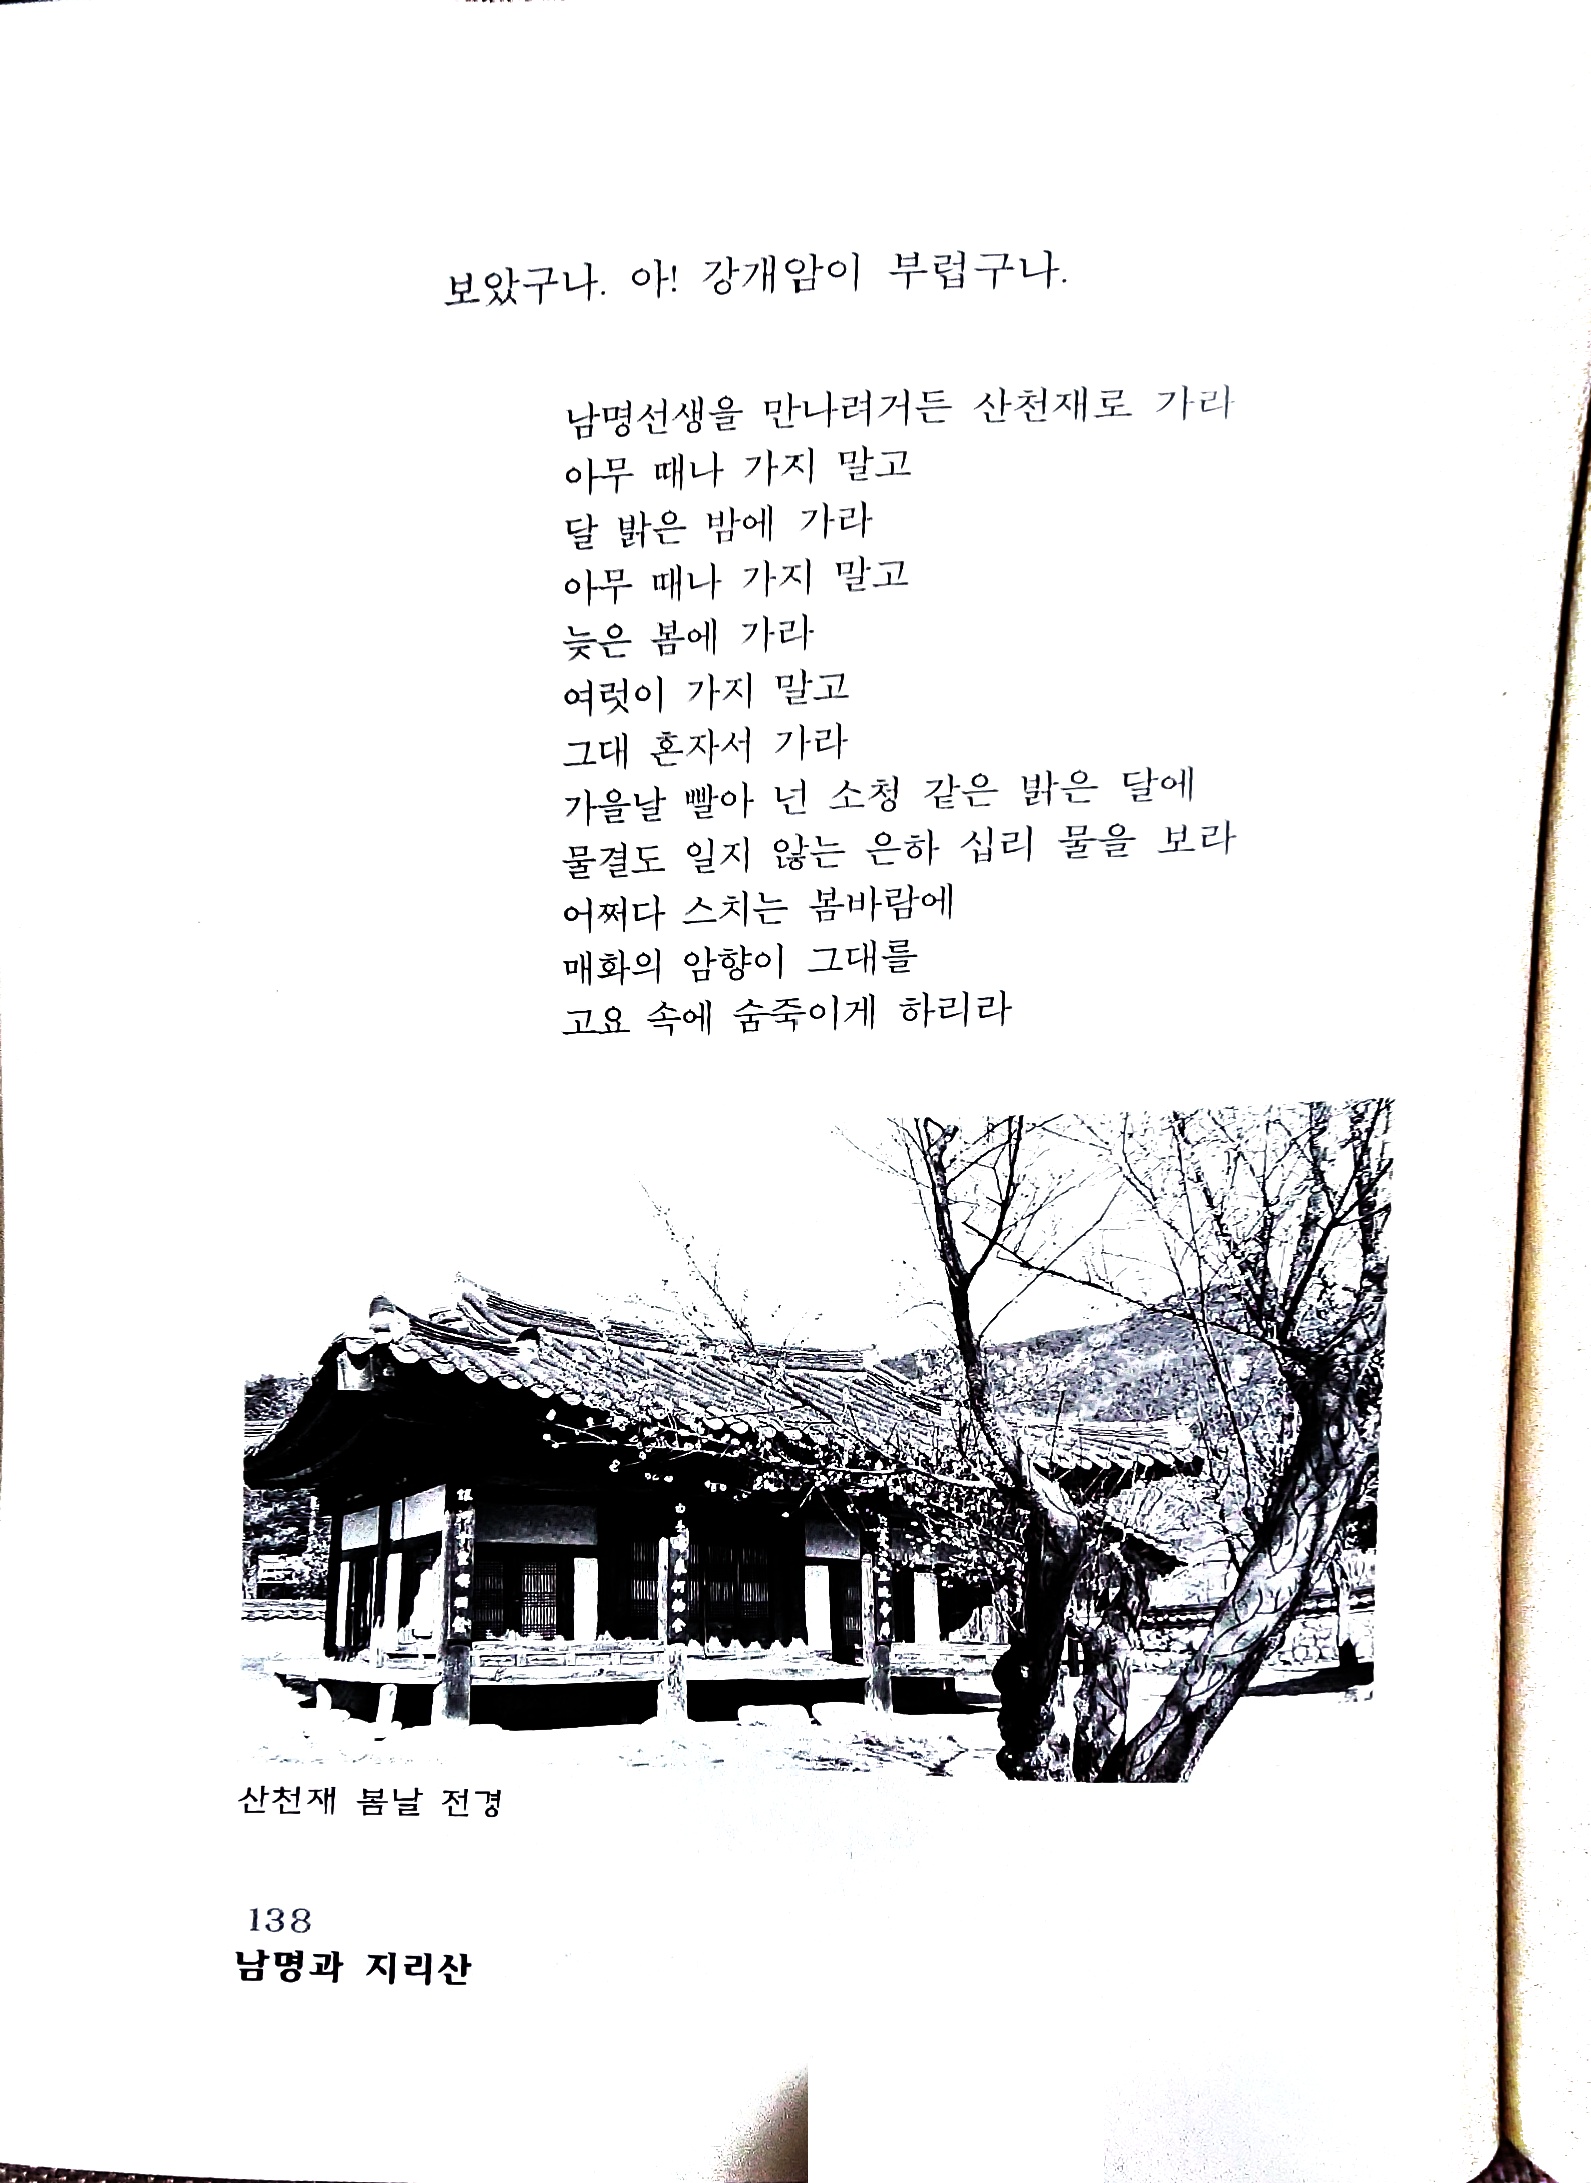 보았구나. 아! 강개암이 부럽구나.
남명선생을 만나려거든 산천재로 가라
아무 때나 가지 말고
달 밝은 밤에 가라
아무 때나 가지 말고
늦은 봄에 가라
여럿이 가지 말고
그대 혼자서 가라
가을날 빨아 넌 소청 같은 밝은 달에
물결도 일지 않는 은하 십리 물을 보라
어쩌다 스치는 봄바람에
매화의 암향이 그대를
고요 속에 숨죽이게 하리라
산천재 봄날 전경
138
남명과 지리산